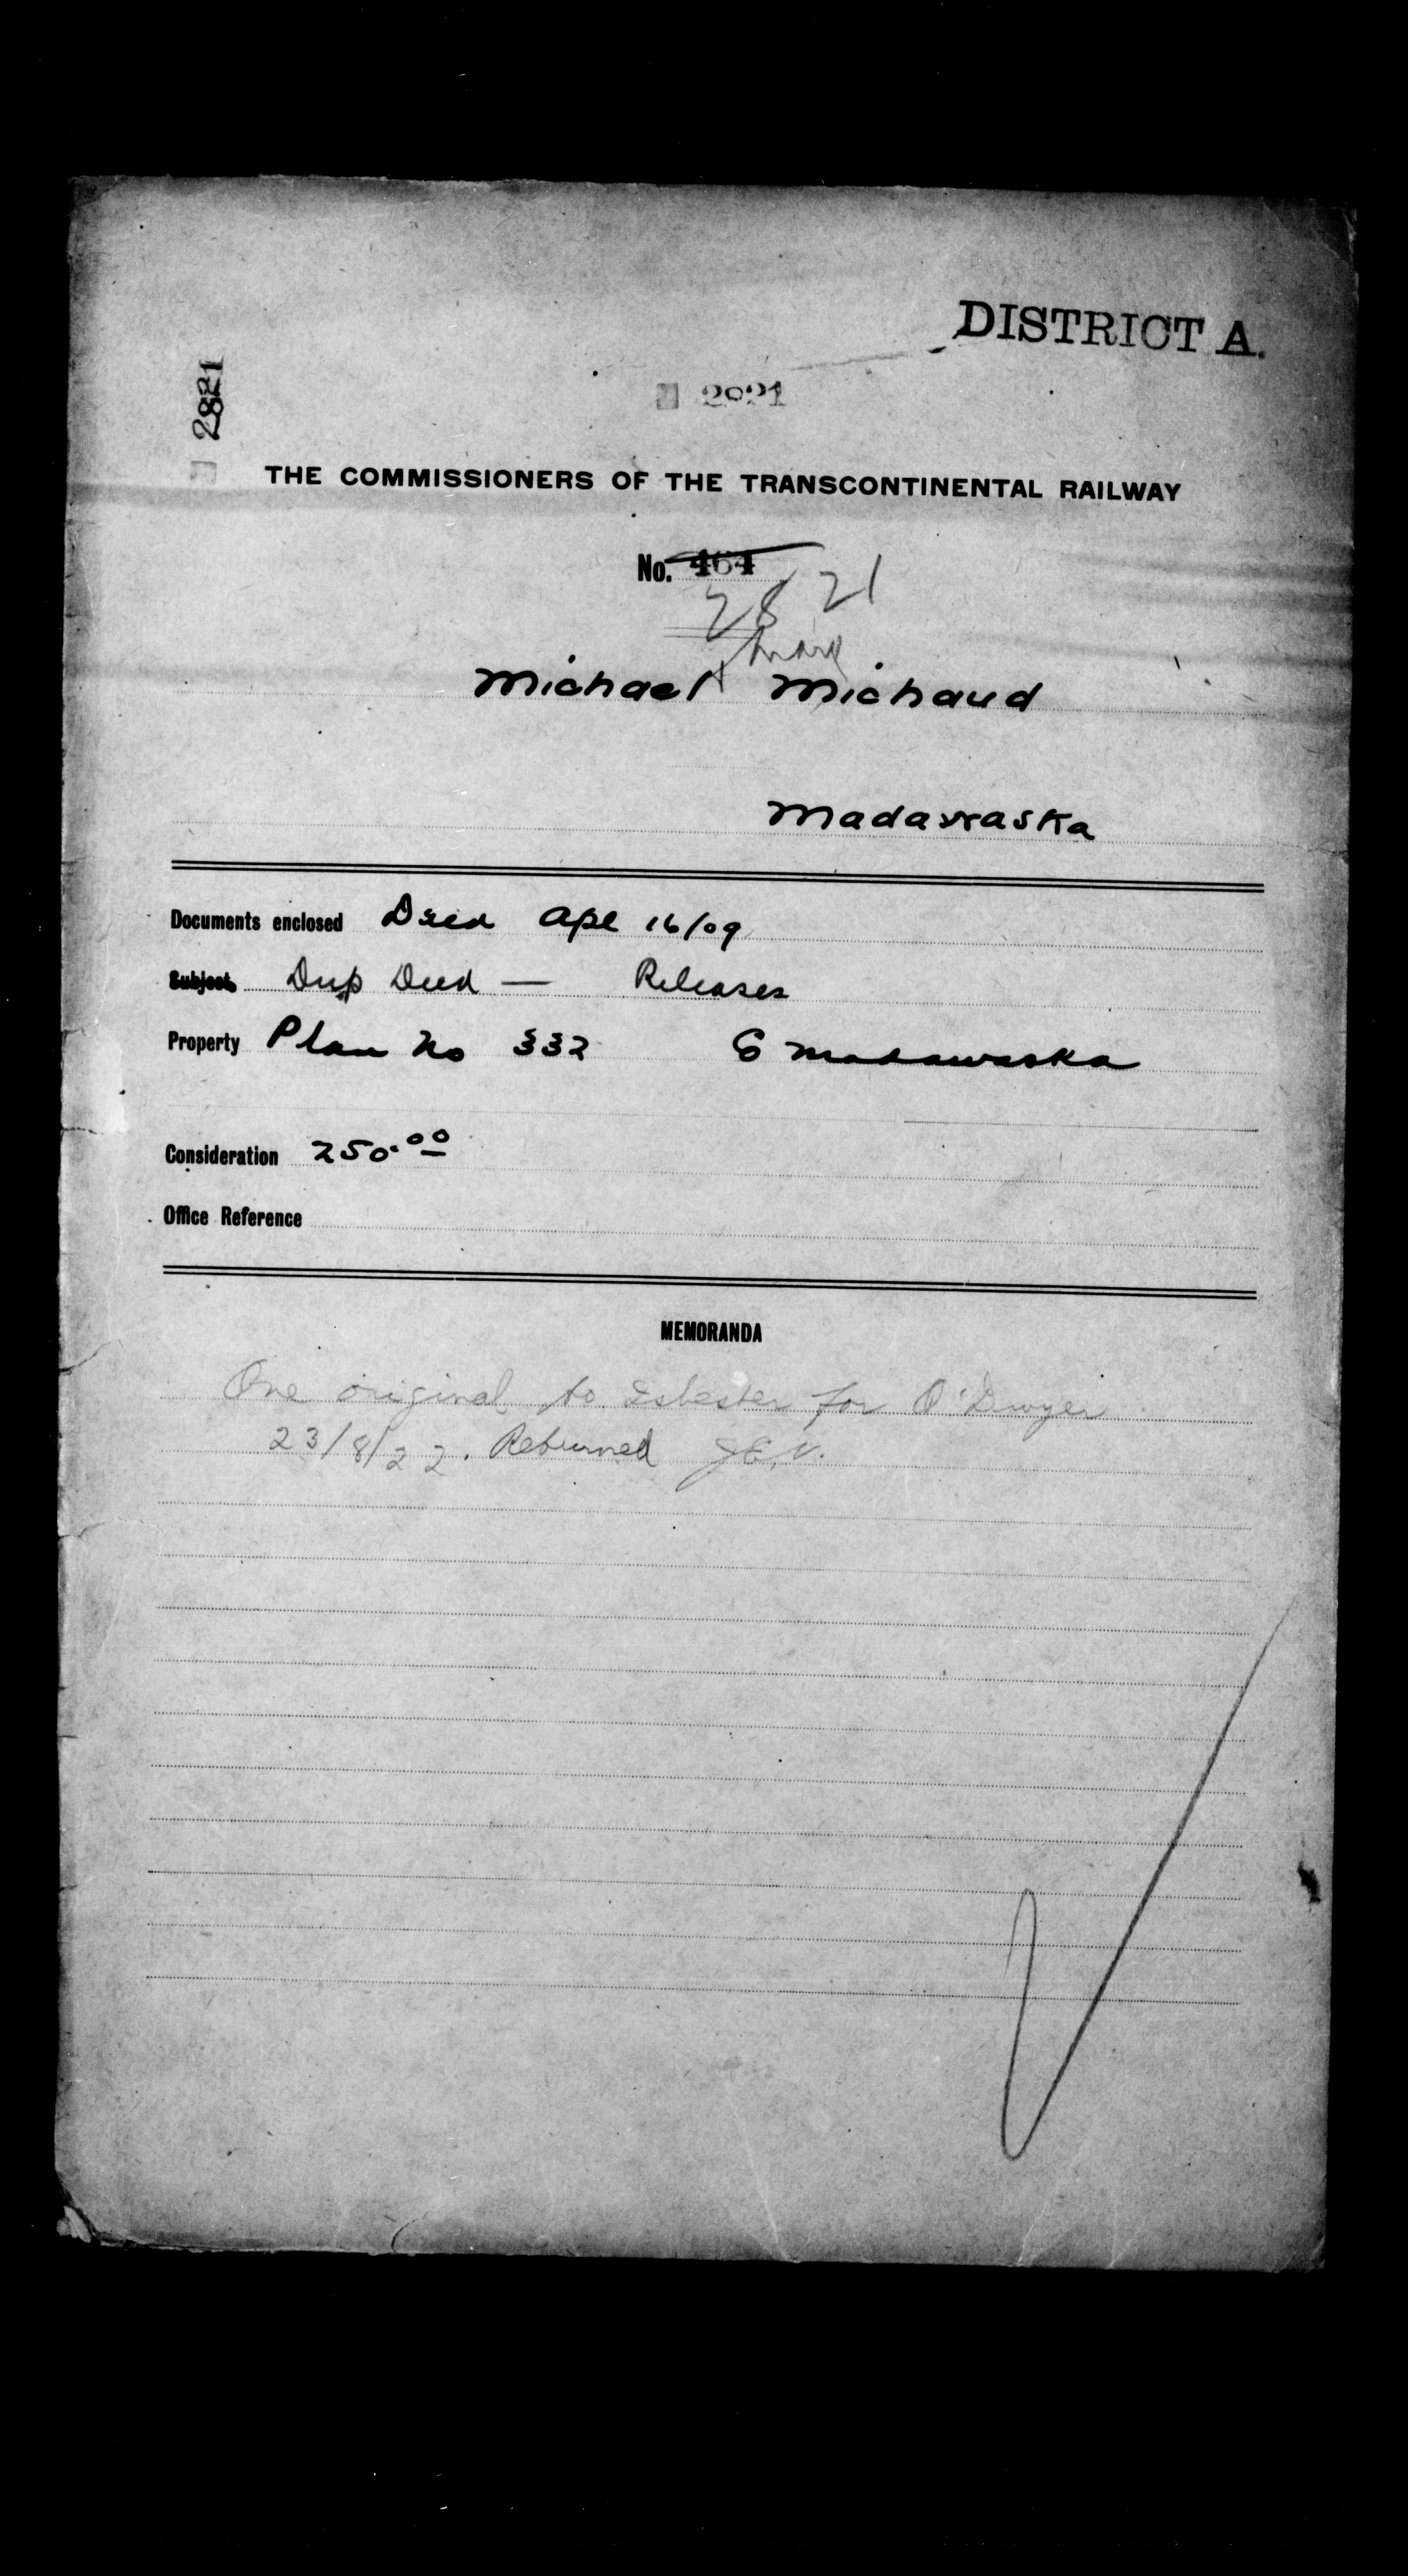 DISTRICT A.
2821
2821
THE COMMISSIONERS OF THE TRANSCONTINENTAL RAILWAY
No. 464
2821
Michael Michaud
Madawaska
Documents enclosed Deed Apl 16/09
Subject Dup Deed — Releases
Property Plan No 332 Co Madawaska
Consideration 250.00
Office Reference
MEMORANDA
One original to Isbester for O'Dwyer
23/8/22. Returned J.E.V.